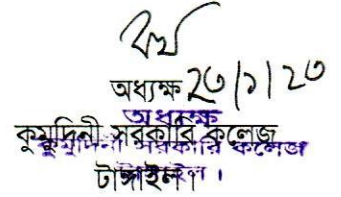 অধ্যক্ষ ২৩/১/২৩
অধ্যক্ষ
কুমুদিনী সরকারি কলেজ
কুমুদিনী সরকারি কলেজ
টাঙ্গাইল।
টাঙ্গাইল।